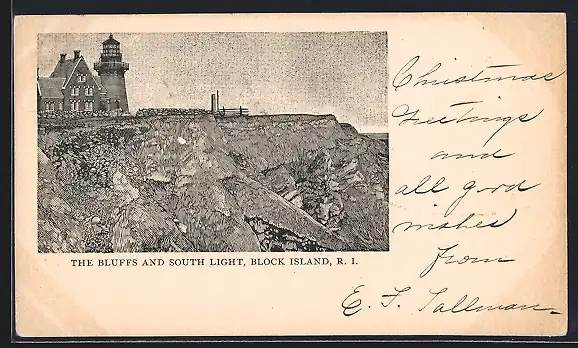 THE BLUFFS AND SOUTH LIGHT, BLOCK ISLAND, R. I.
Christmas
Greetings
and
all good
wishes
from
E. F. Tallman